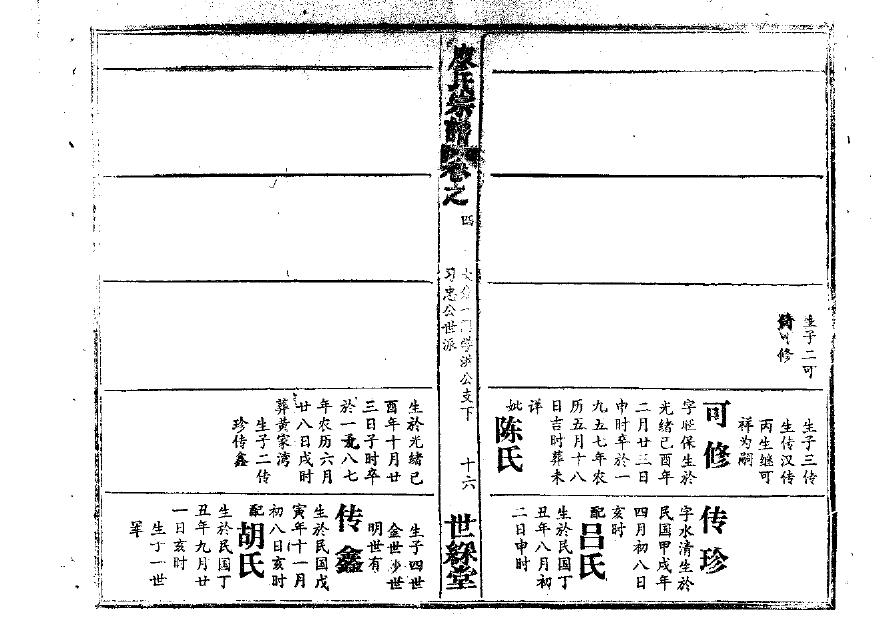 生子二可
修
生子三传
生传汉传
丙生继可
祥为嗣
可修
字旺保生於
光绪己酉年
二月廿三日
申时卒於一
九五七年农
历五月十八
日吉时葬未
详
妣
陈氏
传珍
字水清生於
民国甲戌年
四月初八日
亥时
配
吕氏
生於民国丁
丑年八月初
二日申时
廖氏宗譜卷之
四
公支下
习忠公世派
十六
世綵堂
生於光绪己
酉年十月廿
三日子时卒
於一九八七
年农历六月
廿八日戌时
葬黄家湾
生子二传
珍传鑫
生子四世
金世沙世
明世有
传鑫
生於民国戊
寅年十一月
初八日亥时
配
胡氏
生於民国丁
丑年九月廿
一日亥时
生丁一世
军